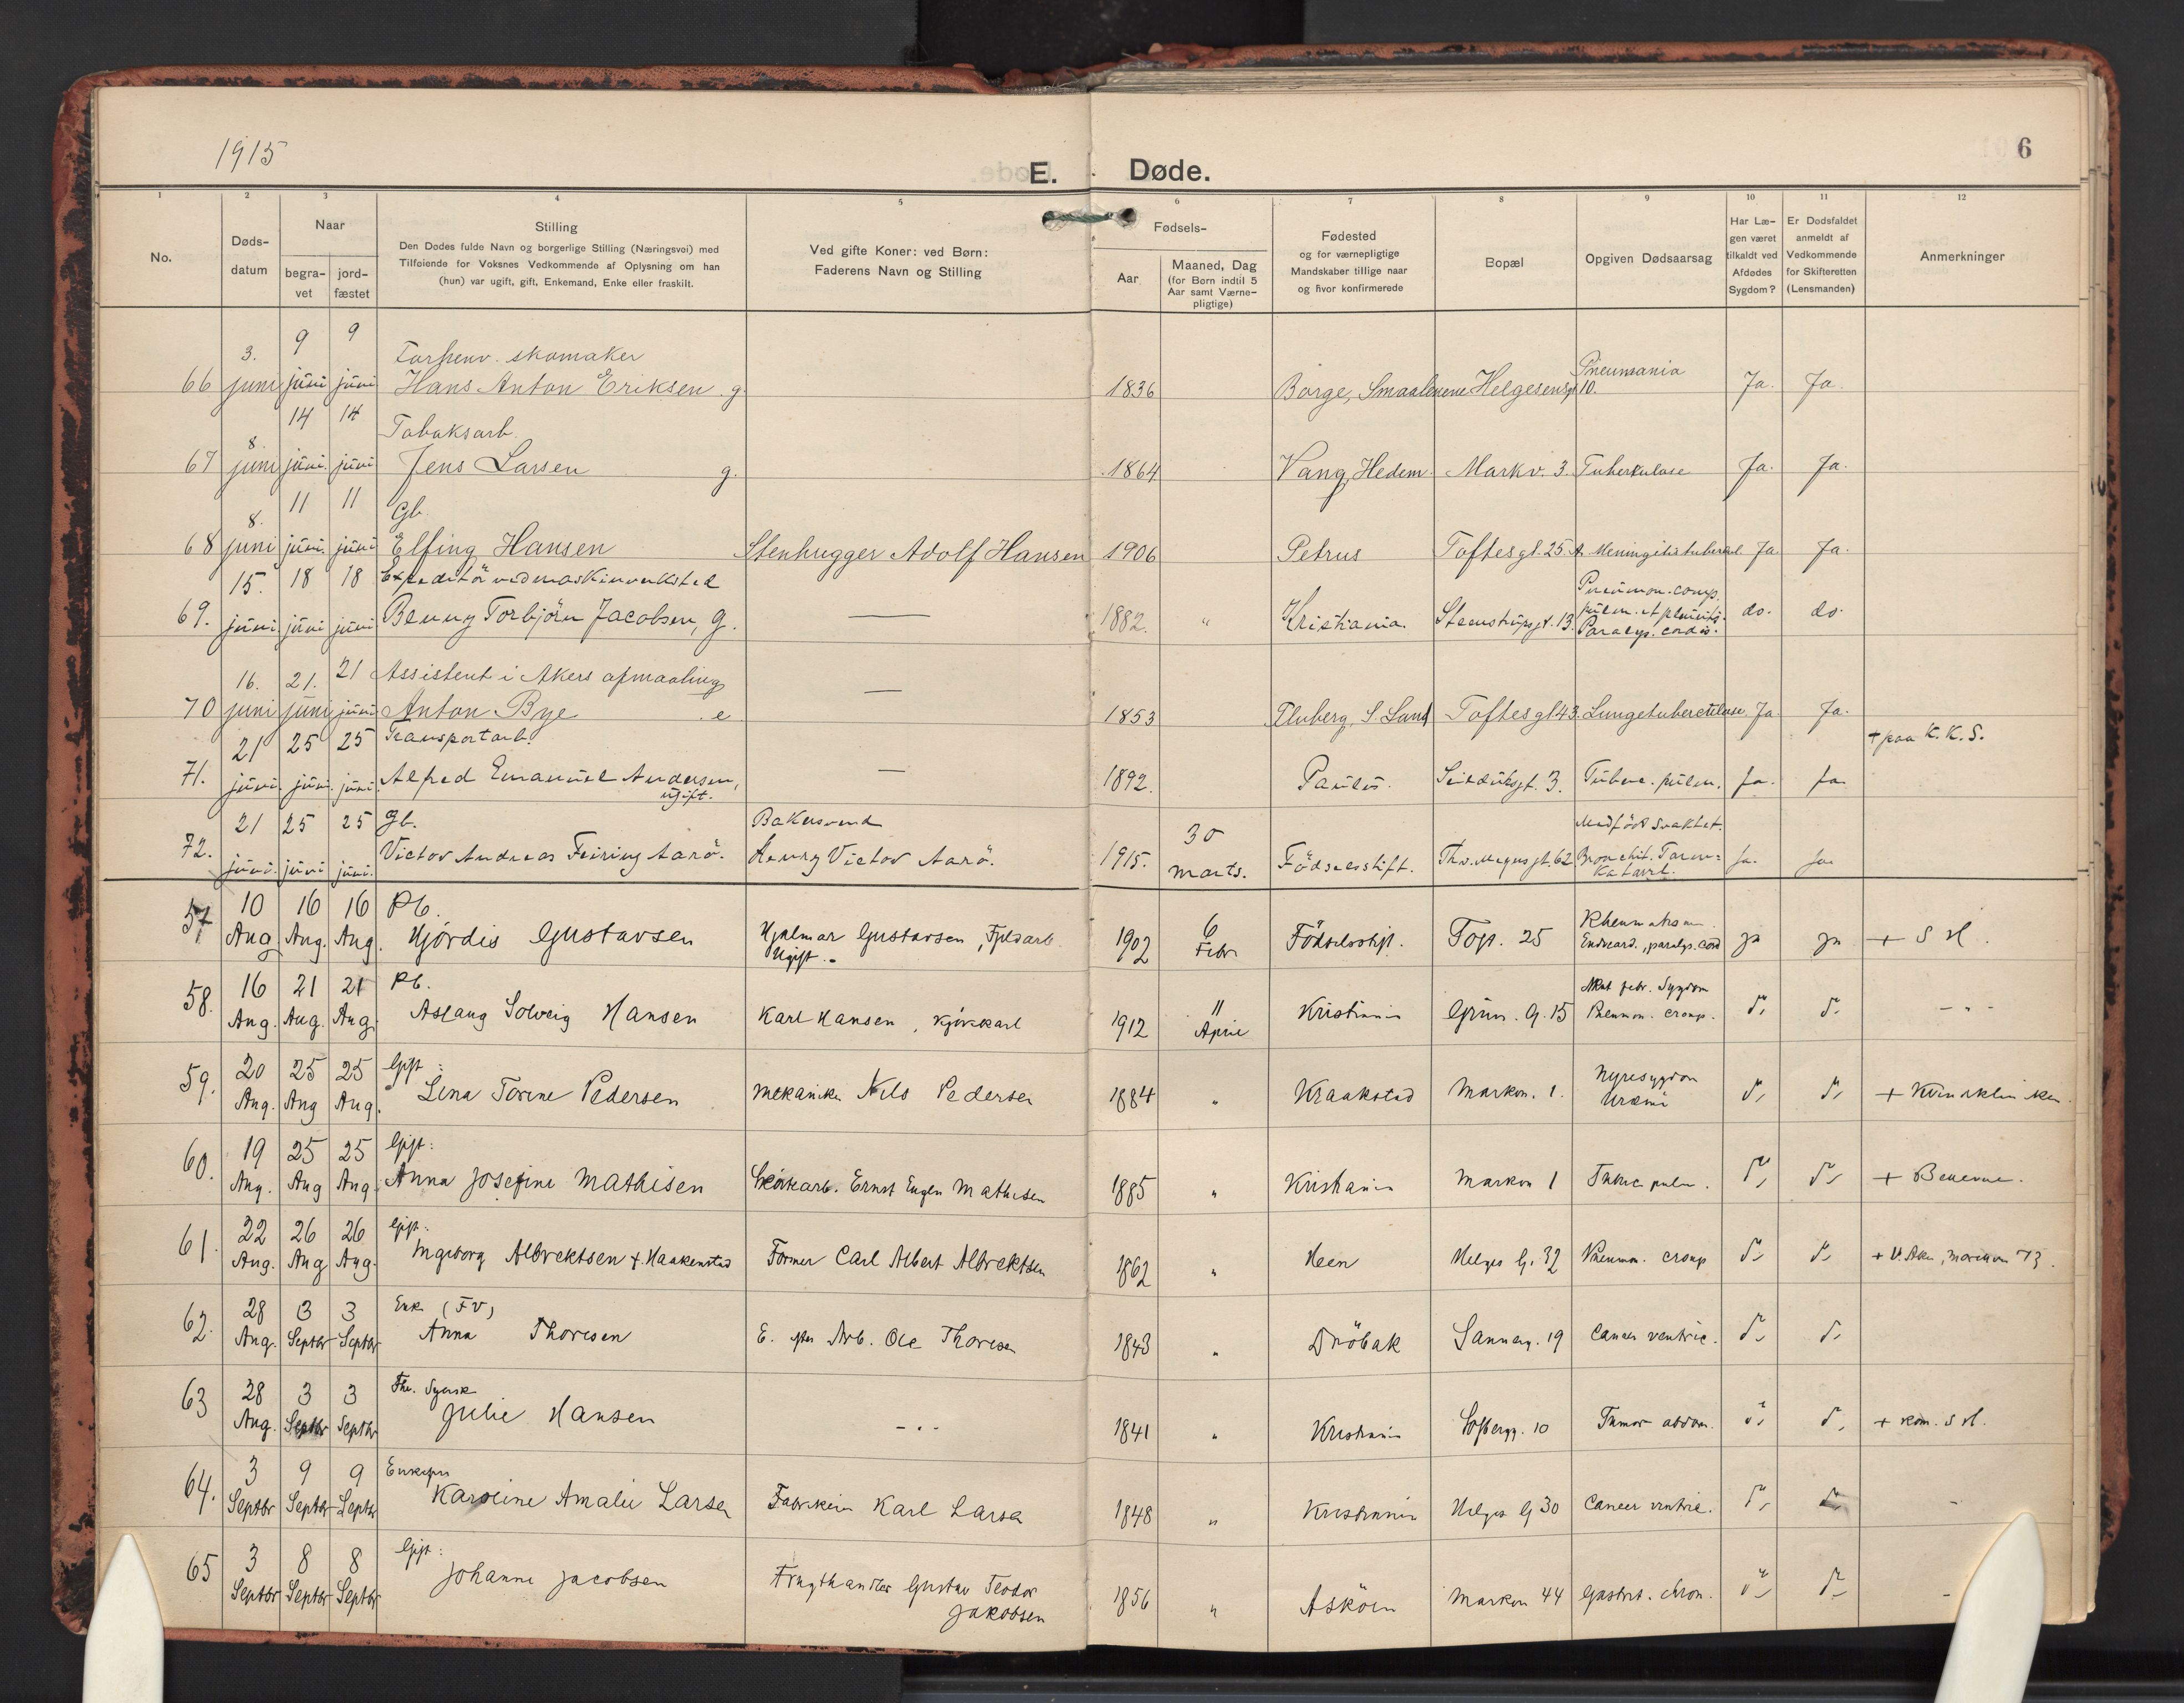 1915
E. Døde.
6
1 2 3 4 5 6 7 8 9 10 11 12
No.
Døds-
datum
Naar
begra-
vet
jord-
fæstet
Stilling
Den Dødes fulde Navn og borgerlige Stilling (Næringsvei) med
Tilføiende for Voksnes Vedkommende af Oplysning om han
(hun) var ugift, gift, Enkemand, Enke eller fraskilt.
Ved gifte Koner: ved Børn:
Faderens Navn og Stilling
Fødsels-
Aar
Maaned, Dag
(for Børn indtil 5
Aar samt Værne-
pligtige)
Fødested
og for værnepligtige
Mandskaber tillige naar
og hvor konfirmerede
Bopæl
Opgiven Dødsaarsag
Har Læ-
gen været
tilkaldt ved
Afdødes
Sygdom?
Er Dødsfaldet
anmeldt af
Vedkommende
for Skifteretten
(Lensmanden)
Anmerkninger
3. 9 9 skomaker Pneumania
66 juni juni juni Hans Anton Eriksen g. 1836 Borge, Smaalenene Helgesensgt 10. Ja. Ja.
8. 14 14 Tobaksarb.
67 juni juni. juni Jens Larsen g. 1864 Vang, Hedem. Markv. 3. Tuberkulose Ja. Ja.
8. 11 11 Gb.
68 juni juni. juni Elfing Hansen Stenhugger Adolf Hansen 1906 Petrus Toftesgt. 25 A. Meningitis tubercul Ja. Ja.
15. 18 18 Expeditör ved maskinverksted Pneumon. croup.
69. juni juni juni Benny Torbjörn Jacobsen, g. — 1882. " Kristiania. Steenstrupsgt. 13. pulm. et pleurit. do. do.
Paralys. cordis.
16. 21. 21 Assistent i Akers opmaaling
70 juni juni juni Anton Bye e — 1853 Fluberg, S. Land Toftesgt 43. Lungetuberculose. Ja. Ja.
21 25 25 Transportarb. + paa K. K. S.
71. juni. juni. juni. Alfred Emanuel Andersen, — 1892. Paulus. Seilduksgt. 3. Tuberc. pulm. Ja. Ja.
ugift.
21 25 25 Gb. Bakersvend 30 Medfödt svakhet.
72. juni. juni juni. Victor Andreas Feiring Aarö. Henry Victor Aarö. 1915. marts. Födselsstift. Th. v. Meyers gt. 62 Bronchit. Tarm- Ja. Ja.
katarrh.
10 16 16 Pb. 6 Rheumatism.
57 Aug Aug. Aug. Hjördis Gustavsen Hjalmar Gustavsen, 1902 Febr Födselsstift. Top. 25 Endocard., paralys. cord ja ja + S H.
Ugift.
16 21 21 Pb. 11 Akut febr. Sygdom
58. Aug. Aug. Aug. Aslaug Solveig Hansen Karl Hansen, kjörekarl 1912 April Kristiania Grün. G. 15 Pneumon. croup. - " -
20 25 25 Gift: Nyresygdom
59. Aug. Aug Aug. Lena Torine Pedersen Mekaniker Nils Pedersen 1884 " Kraakstad Markvn. 1. Uræmi + Kvindeklinikken
19 25 25 Gift:
60. Aug. Aug Aug. Anna Josefine Mathisen Ernst Eugen Mathisen 1885 " Kristiania Markvn 1 Tuberc pulm. +
22 26 26 Gift:
61. Aug. Aug Aug. Ingeborg Albrektsen f. Haakenstad Former Carl Albert Albrektsen 1862 " Heen Helges G. 32 Pneumon. croup + V. Aker,
28 3 3 Enke (FV)
62. Aug. Septbr Septbr Anna Thoresen E. efter Arb. Ole Thoresen 1843 " Dröbak Sannerg. 19 Cancer ventric.
28 3 3 Fhv. Syersk
63 Aug. Septbr Septbr Julie Hansen - " - 1841 " Kristiania Sofienbergg. 10 Tumor abdom. + kom. S H.
3 9 9 Enkefru
64. Septbr Septbr Septbr Karoline Amalie Larsen Karl Larsen 1848 " Kristiania Helges G 30 Cancer ventric. -
3 8 8 Gift:
65 Septbr Septbr Septbr Johanne Jacobsen Frugthandler Gustav Teodor 1856 " Asköen Markvn 44 Gastrit. chron. -
Jakobsen